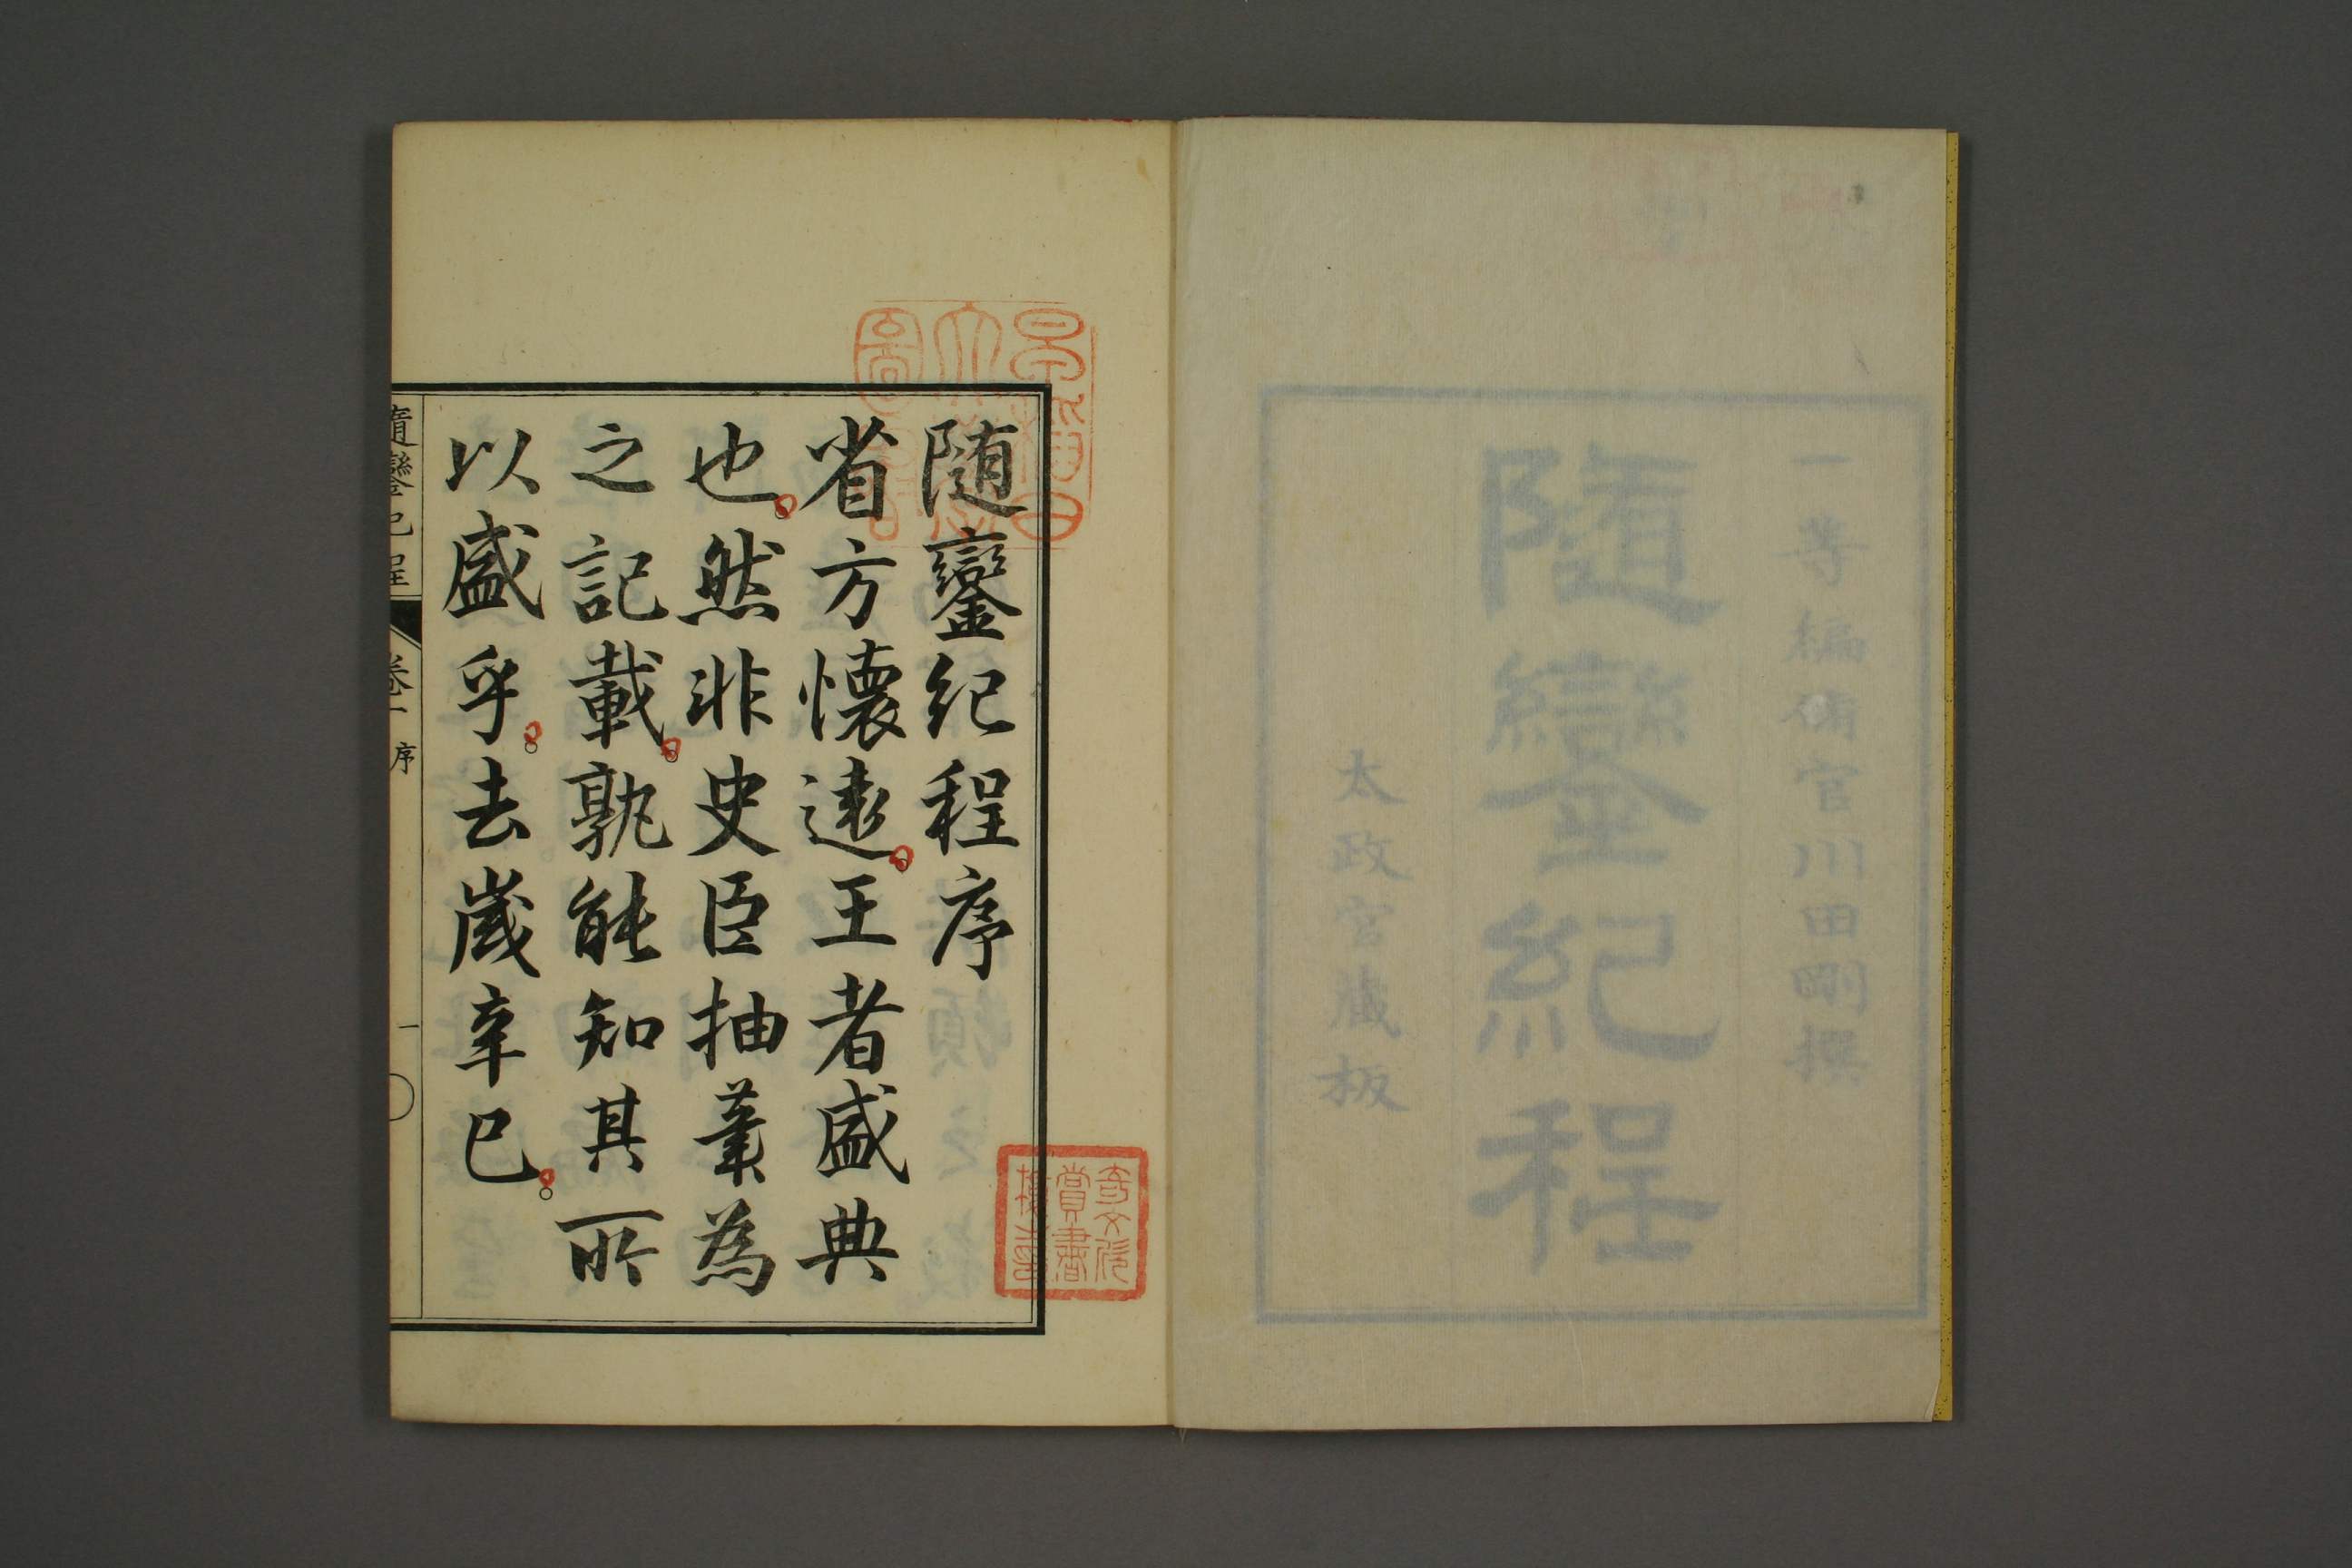 一等編修官川田剛撰
隨鑾紀程
太政官藏板
随鑾紀程序
省方懷遠。王者盛典
也。然非史臣抽豪為
之記載。孰能知其所
以盛乎。去歲辛巳。
隨鑾紀程
卷一 序
一
奇文欣
賞書
樓